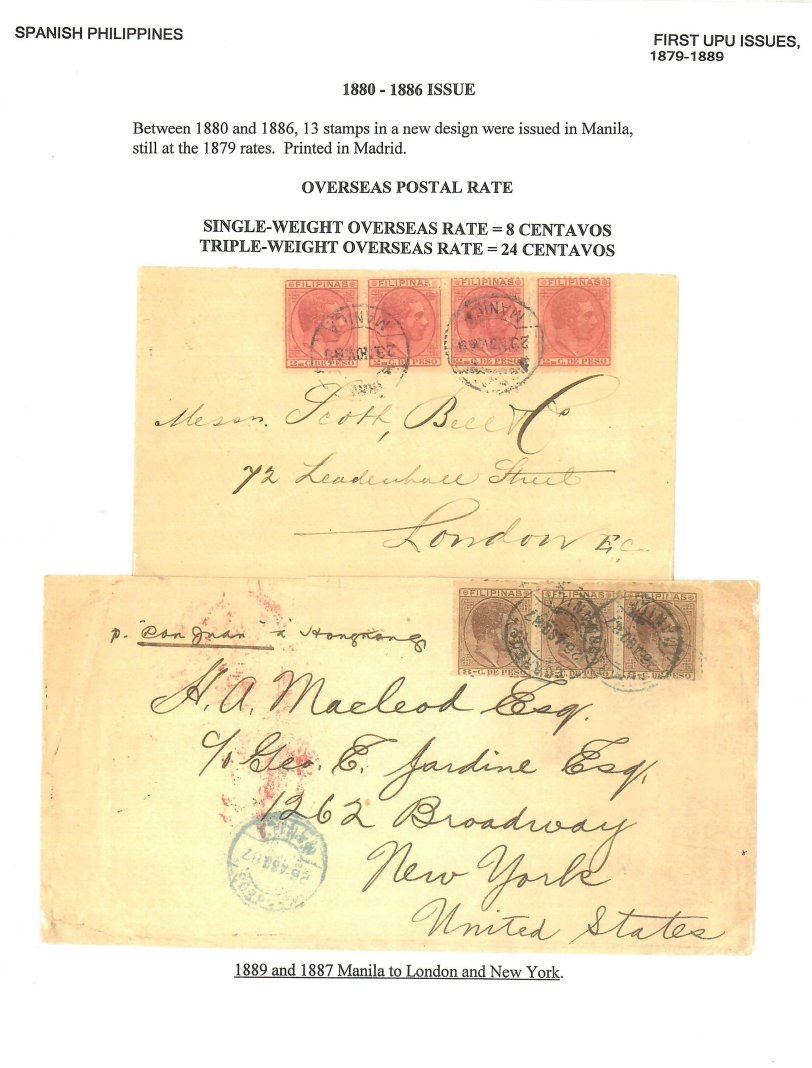 SPANISH PHILIPPINES
FIRST UPU ISSUES,
1879-1889
1880 - 1886 ISSUE
Between 1880 and 1886, 13 stamps in a new design were issued in Manila,
still at the 1879 rates. Printed in Madrid.
OVERSEAS POSTAL RATE
SINGLE-WEIGHT OVERSEAS RATE = 8 CENTAVOS
TRIPLE-WEIGHT OVERSEAS RATE = 24 CENTAVOS
FILIPINAS FILIPINAS FILIPINAS FILIPINAS
MANILA MANILA
C. DE PESO C. DE PESO C. DE PESO C. DE PESO
Messrs. Scott, Bell & Co
72 Leadenhall Street
London E.C.
FILIPINAS FILIPINAS FILIPINAS
C. DE PESO C. DE PESO C. DE PESO
p. "Don Juan" a Hongkong
H. A. Macleod Esq.
c/o Geo. E. Jardine Esq.
1262 Broadway
New York
United States
1889 and 1887 Manila to London and New York.